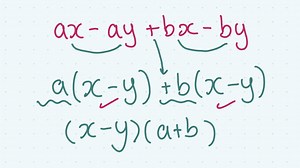 ax - ay + bx - by
a(x-y) + b(x-y)
(x-y)(a+b)